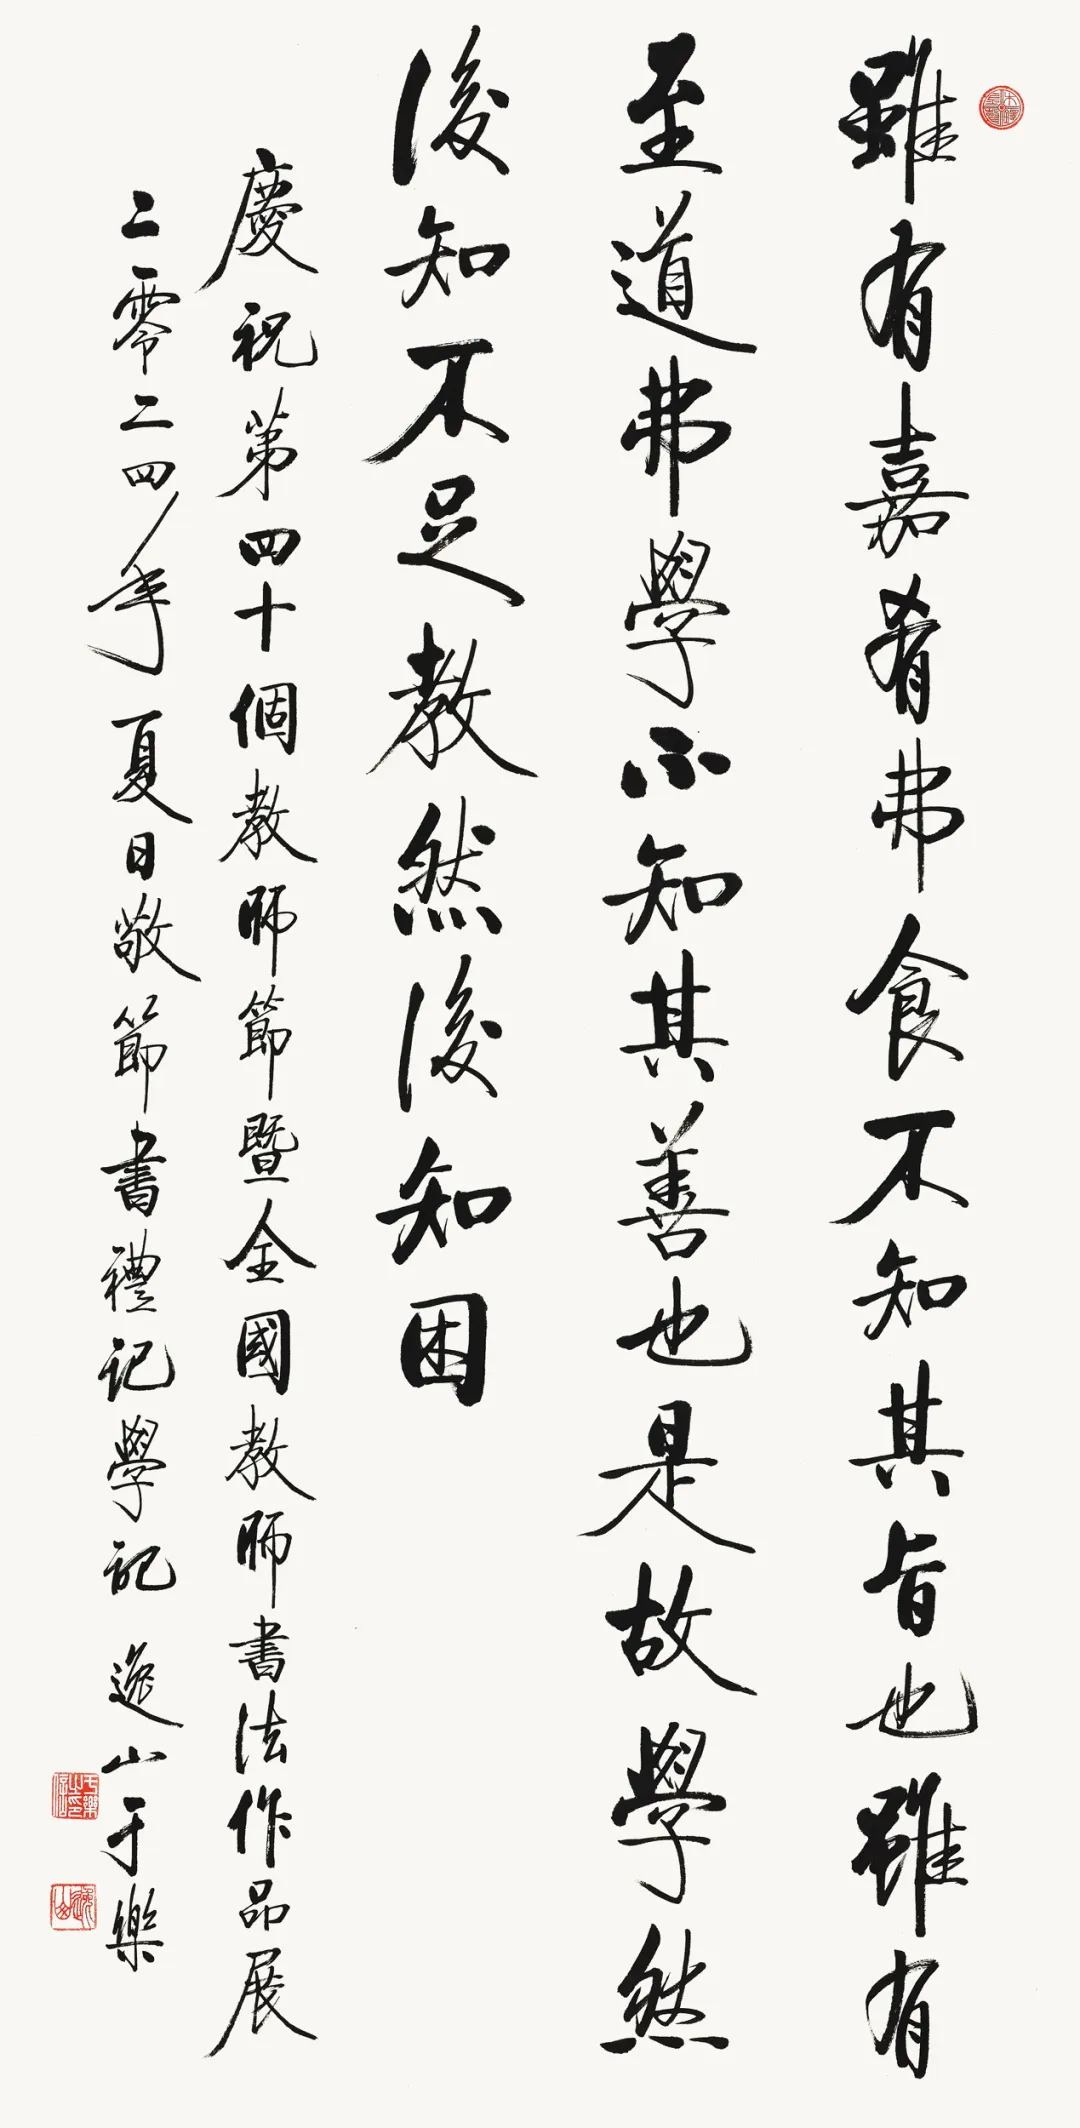 雖有嘉肴弗食不知其旨也雖有
至道弗學不知其善也是故學然
後知不足教然後知困
慶祝第四十個教師節暨全國教師書法作品展
二零二四年夏日敬節書禮记學記 逸山于樂